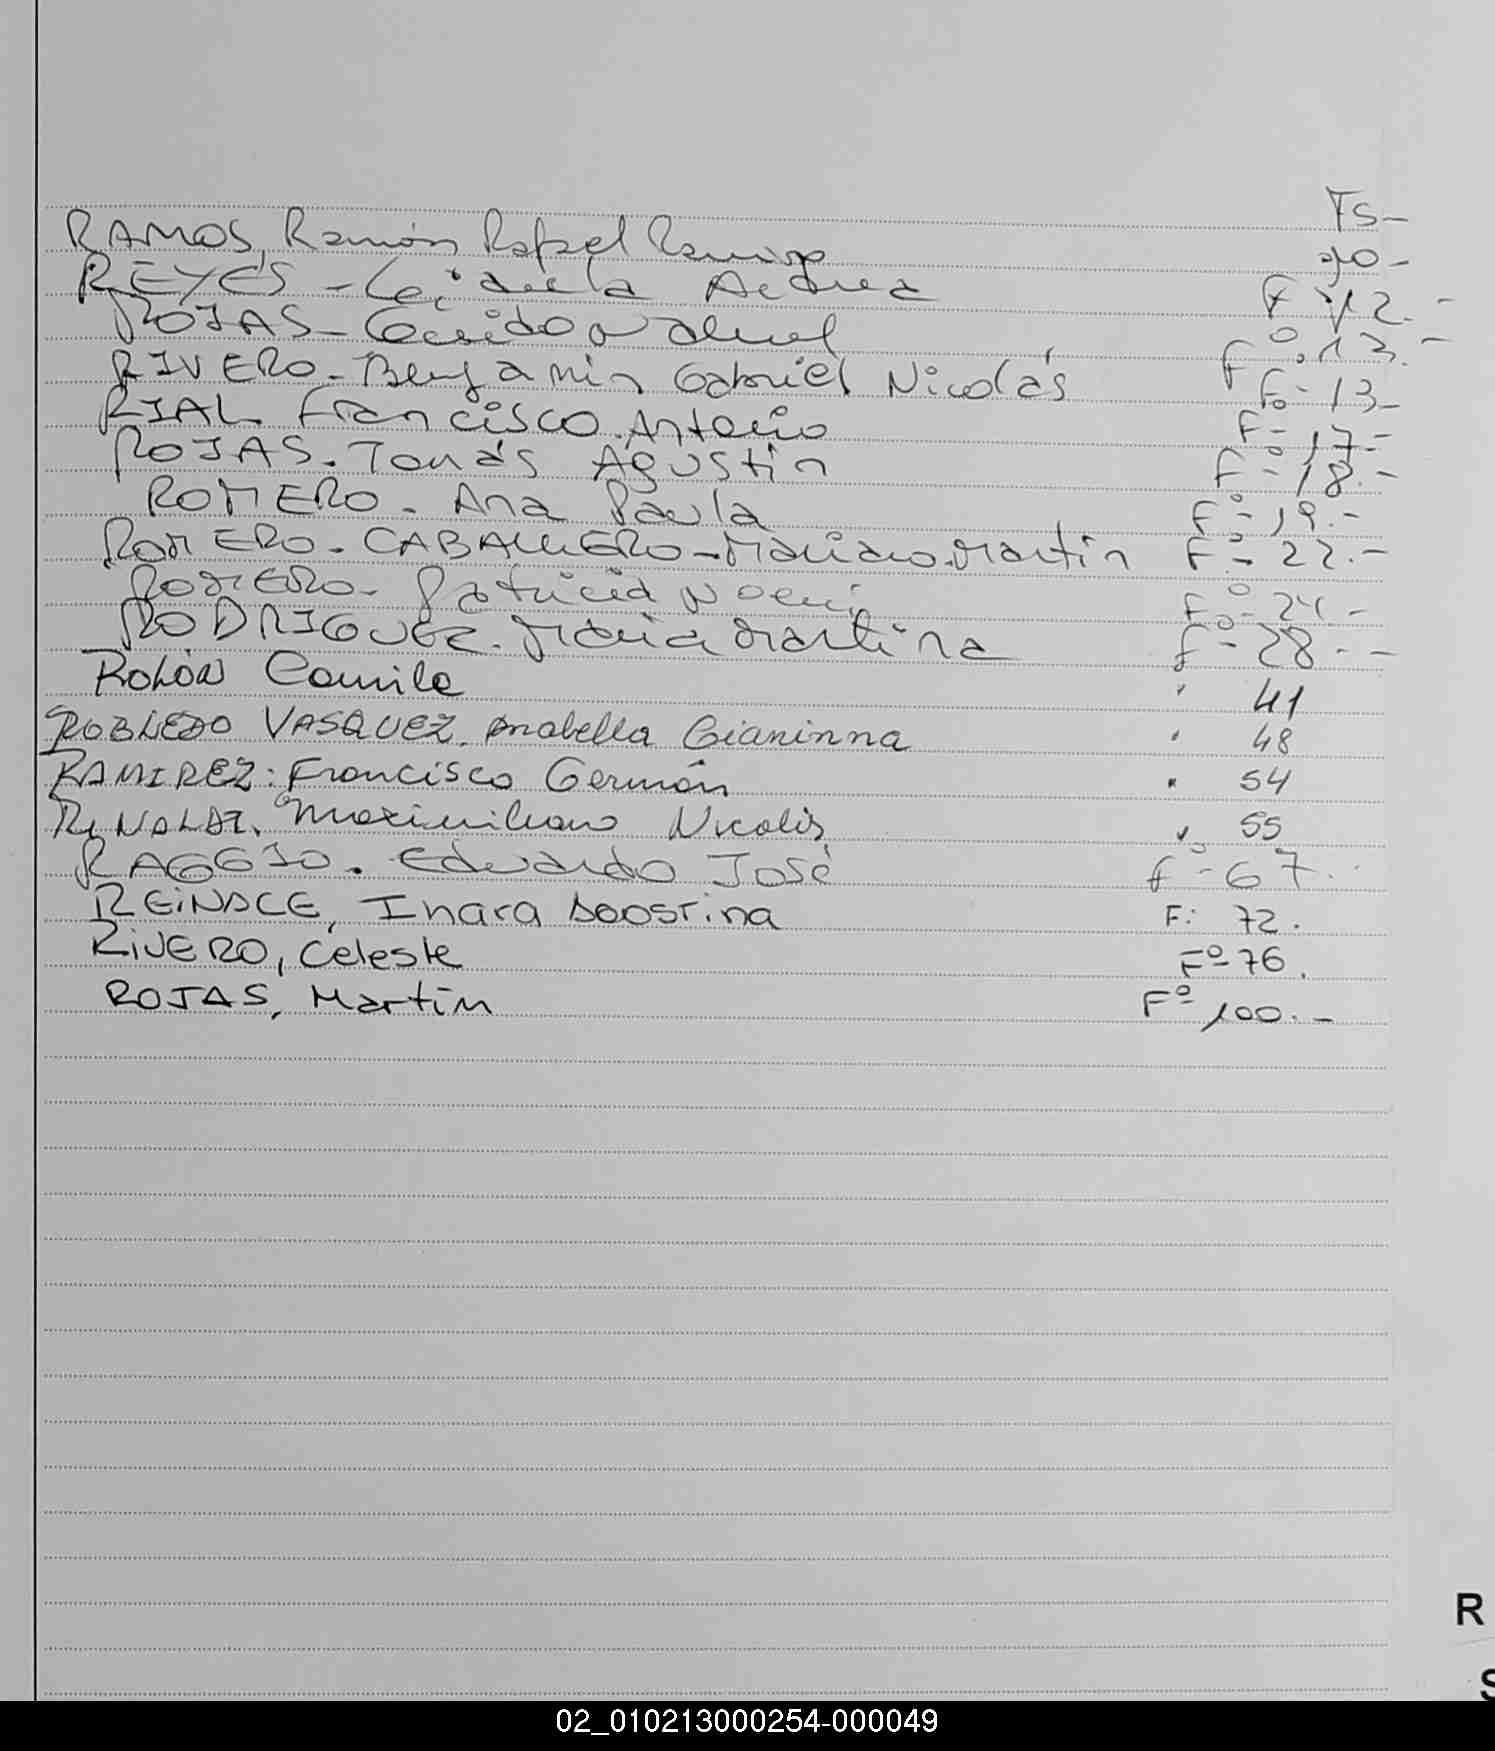 Fs-
RAMOS, Ramón Rafael Ramiro 10-
REYES - F 12.-
ROJAS - Guido Nahuel Fº 13.-
RIVERO - Benjamin Gabriel Nicolás Fº - 13-
RIAL. Francisco Antonio Fº - 17-
ROJAS. Tomás Agustin Fº - 18.-
ROMERO. Ana Paula Fº - 19.-
ROMERO - CABALLERO - Mariano Martin Fº - 22.-
ROMERO - Patricia Noemi Fº - 24.-
RODRIGUEZ. Maria Martina Fº - 28.--
ROLÓN Camila " 41
ROBLEDO VASQUEZ. Anabella Gianinna " 48
RAMIREZ: Francisco Germán " 54
Maximiliano Nicolás " 55
RAGGIO. Eduardo José Fº - 67.
, Inara F: 72.
RIVERO, Celeste Fº 76.
ROJAS, Martín Fº 100.-
R
S
02_010213000254-000049